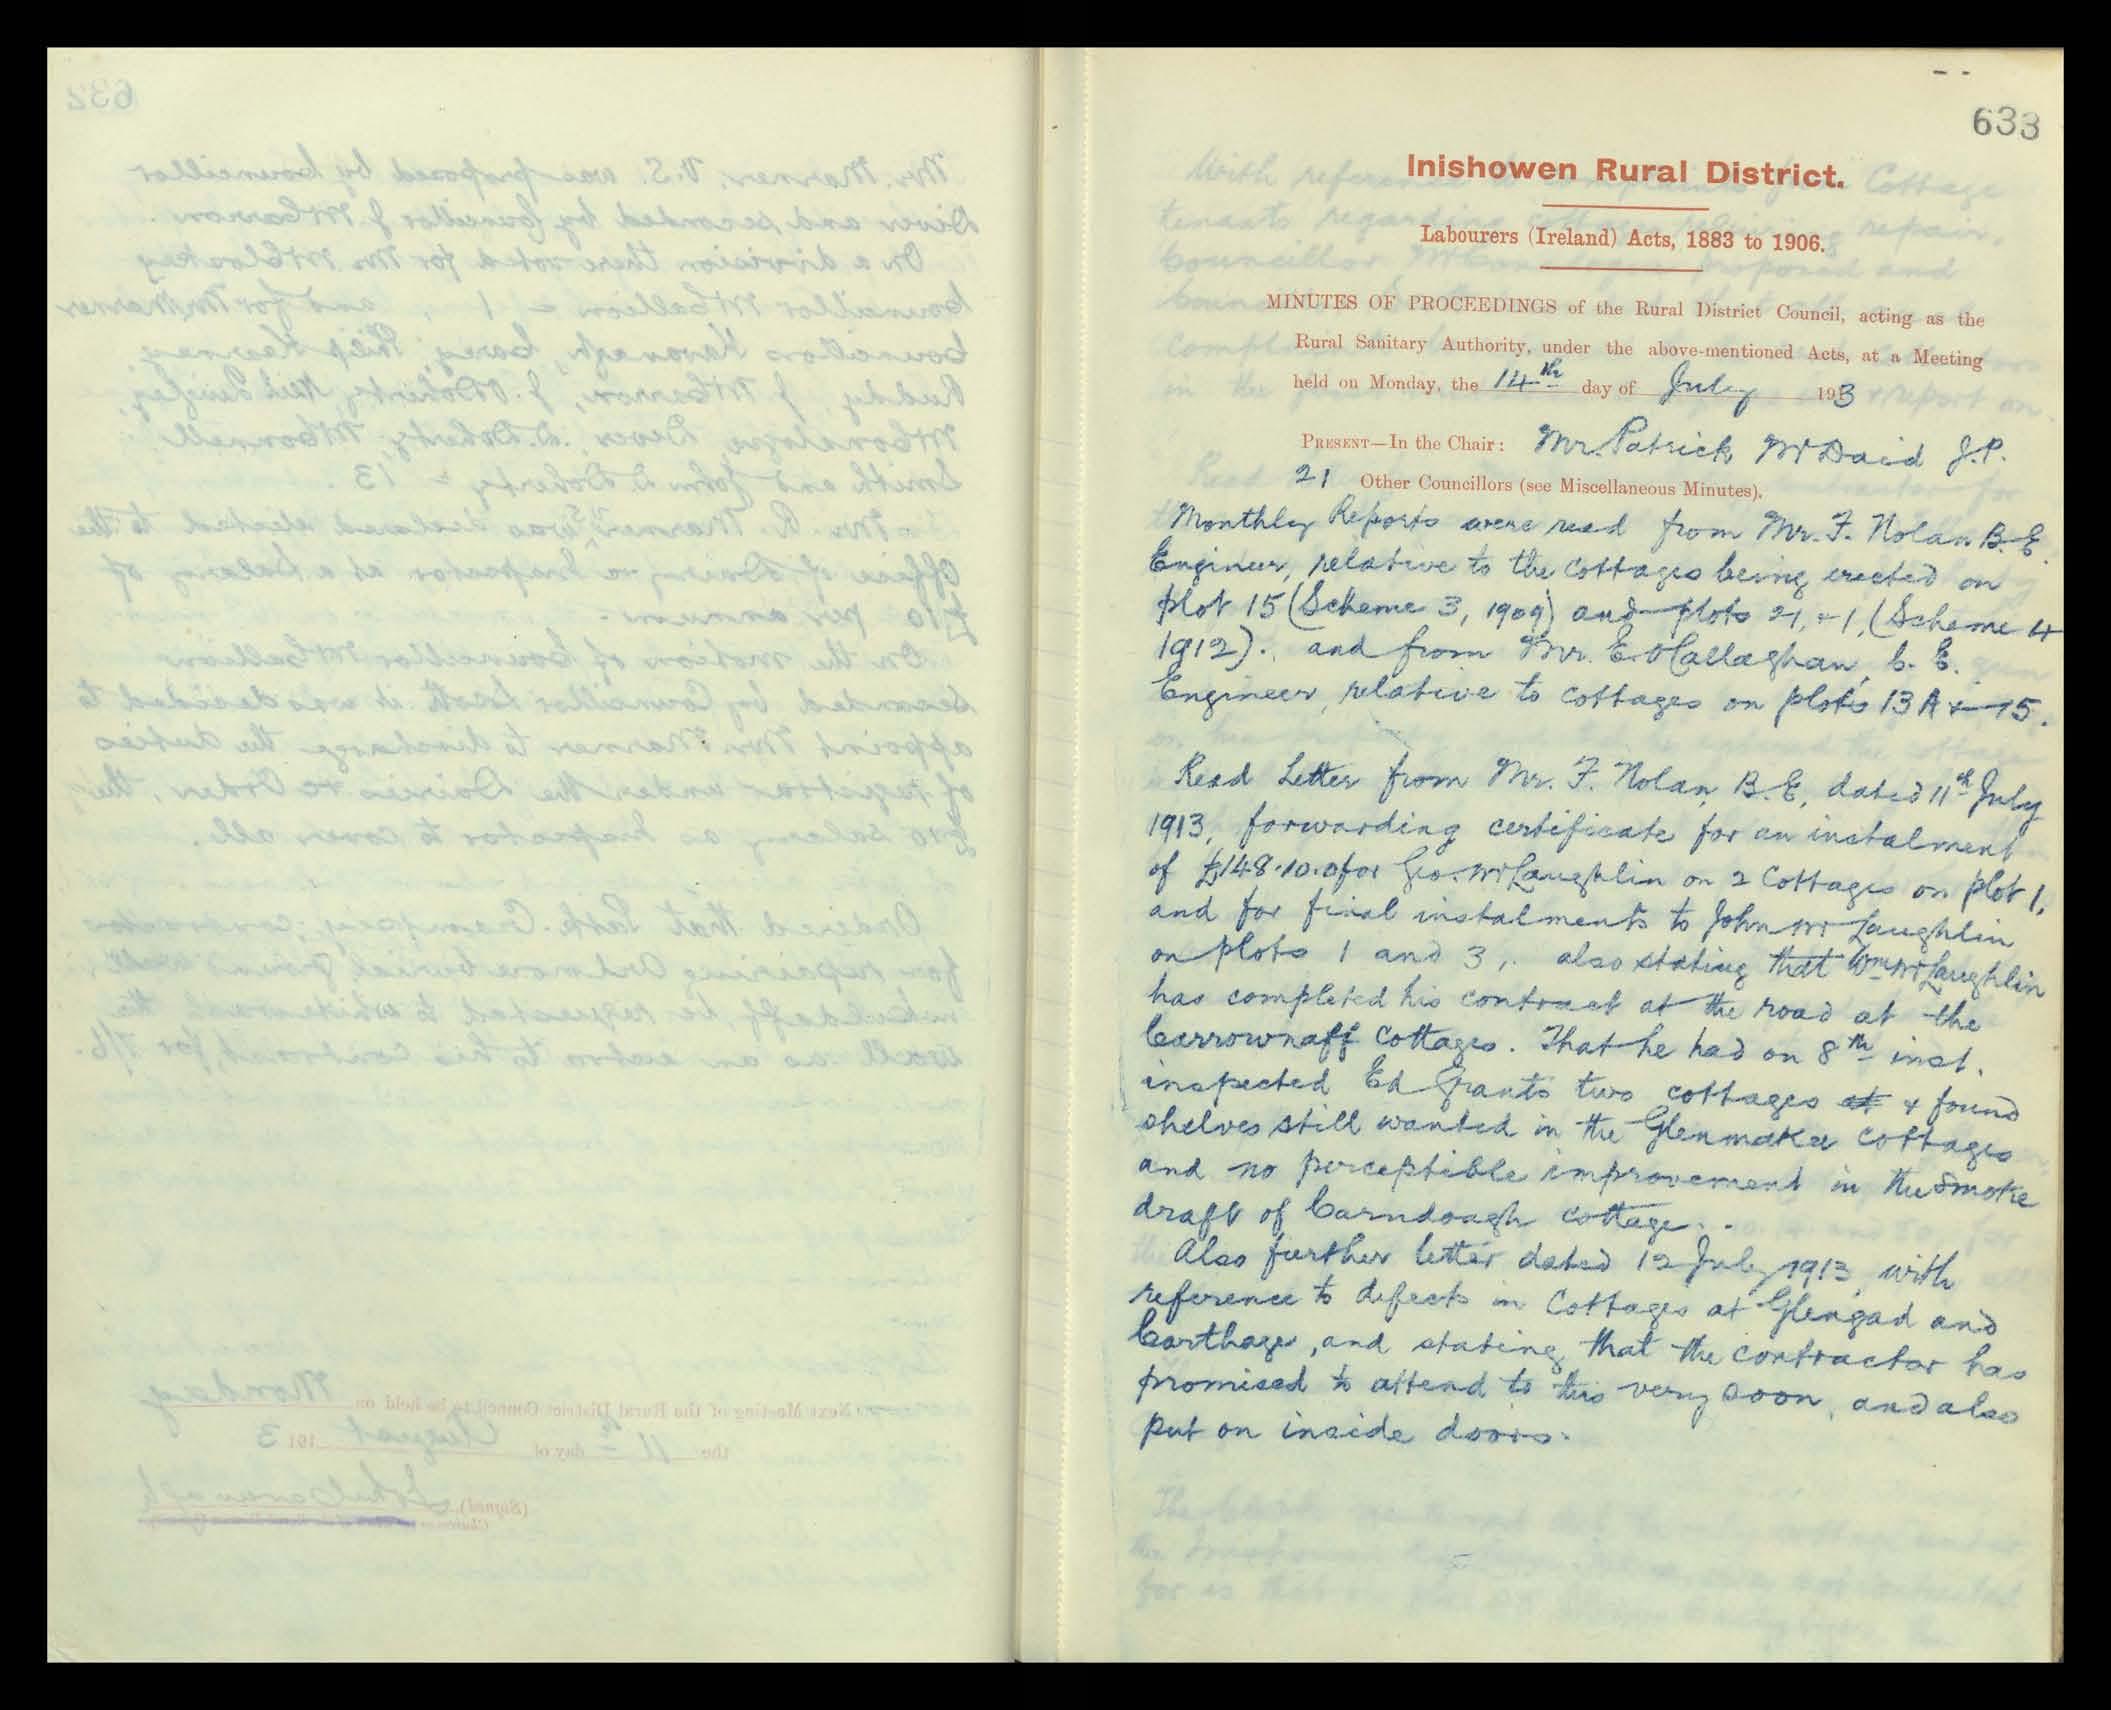 633
Inishowen Rural District.
Labourers (Ireland) Acts, 1883 to 1906.
MINUTES OF PROCEEDINGS of the Rural District Council, acting as the
Rural Sanitary Authority, under the above-mentioned Acts, at a Meeting
held on Monday, the 14th day of July 1913
PRESENT—In the Chair: Mr. Patrick McDaid J.P.
21 Other Councillors (see Miscellaneous Minutes).
Monthly Reports were read from Mr. F. Nolan B.E.
Engineer, relative to the cottages being erected on
plot 15 (Scheme 3, 1909) and plots 21, & 1, (Scheme 4
1912). and from Mr. E. O'Callaghan, C.E.
Engineer, relative to cottages on plots 13A & 15.
Read Letter from Mr. F. Nolan, B.E, dated 11th July
1913, forwarding certificate for an instalment
of £148.10.0 for Geo. McLaughlin on 2 Cottages on plot 1,
and for final instalments to John McLaughlin
on plots 1 and 3, also stating that Wm McLaughlin
has completed his contract at the road at the
Carrownaff Cottages. That he had on 8th inst.
inspected Ed Grants two cottages at & found
shelves still wanted in the Glenmakee cottages
and no perceptible improvement in the smoke
draft of Carndoagh cottage.
Also further letter dated 12 July 1913, with
reference to defects in Cottages at Glengad and
Carthage, and stating that the contractor has
promised to attend to this very soon, and also
put on inside doors.